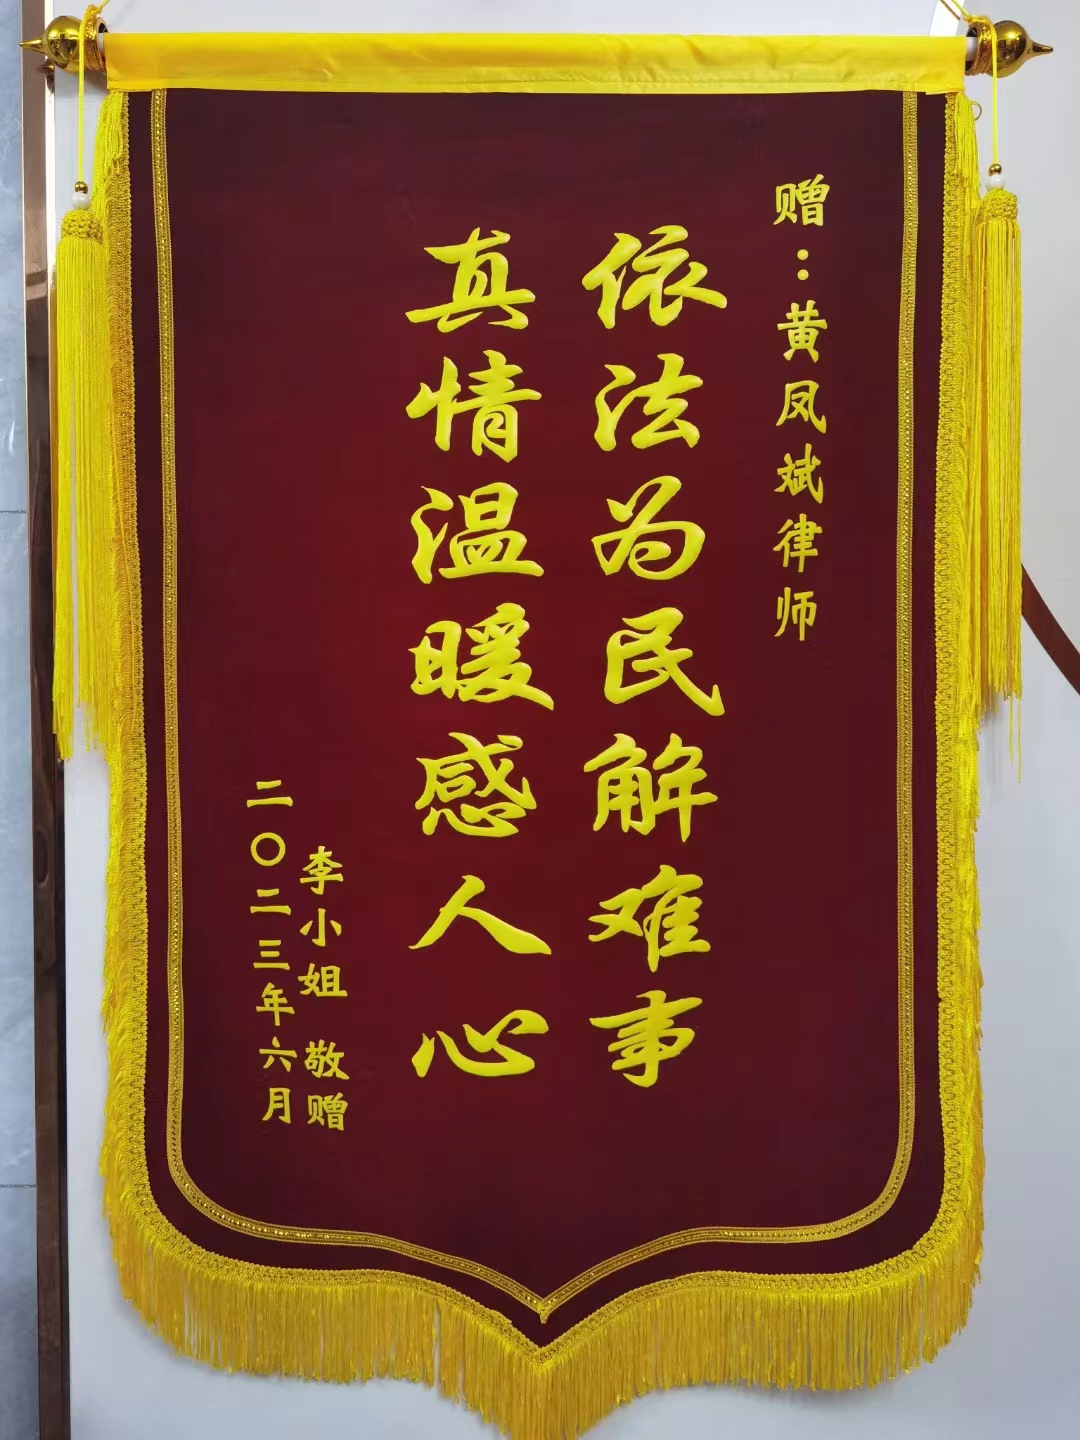 赠：黄凤斌律师
依法为民解难事
真情温暖感人心
李小姐 敬赠
二〇二三年六月